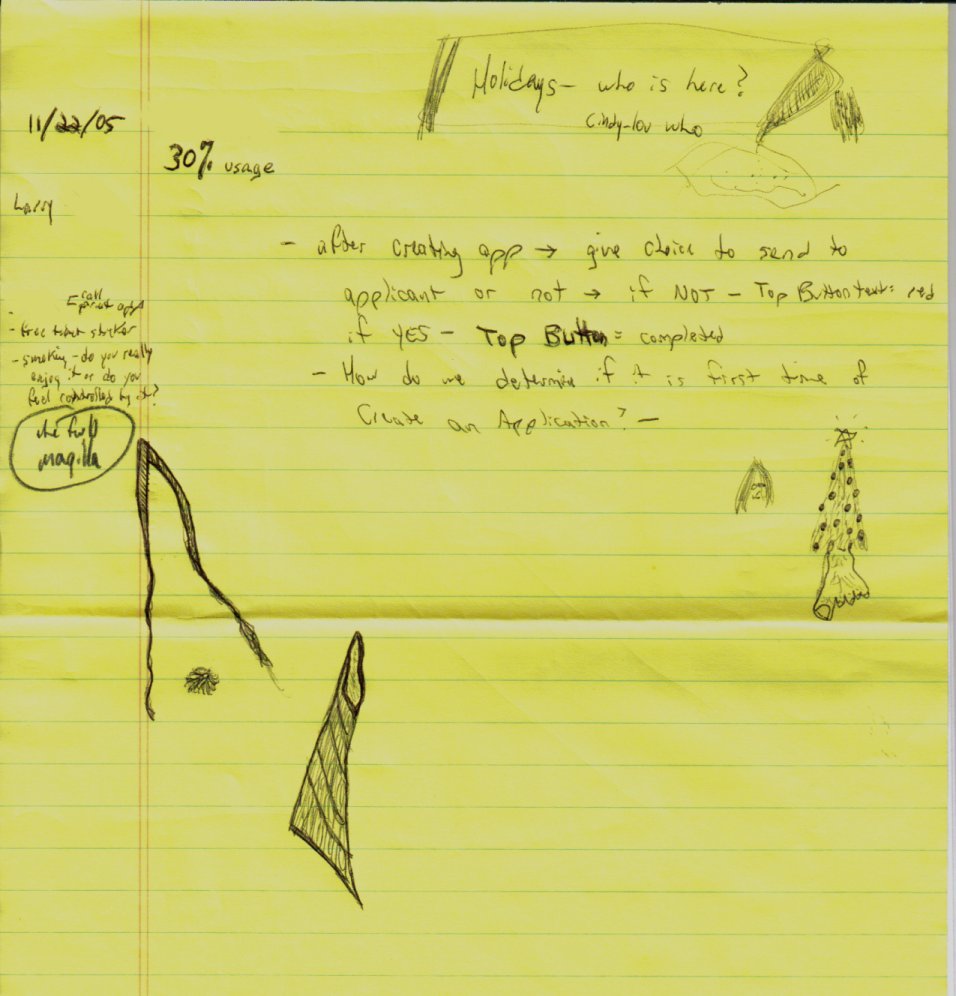 Holidays - who is here?
Cindy-lou who
11/22/05
30% usage
Larry
- after creating app → give choice to send to
applicant or not → if NOT - Top Button text = red
if YES - Top Button = completed
- How do we determine if it is first time of
Create an Application? -
call
- free ticket
- smoking - do you really
enjoy it or do you
feel controlled by it?
the full
magilla